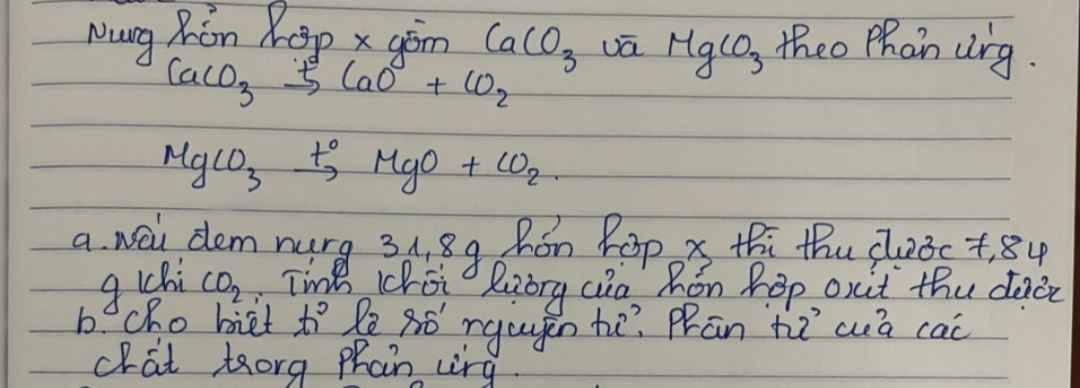 Nung hỗn hợp x gồm CaCO₃ và MgCO₃ theo phản ứng.
CaCO₃ t°→ CaO + CO₂
MgCO₃ t°→ MgO + CO₂.
a. Nếu đem nung 31,8g hỗn hợp x thì thu được 7,84
g khí CO₂. Tính khối lượng của hỗn hợp oxit thu được
b. Cho biết tỉ lệ số nguyên tử, phân tử của các
chất trong phản ứng.